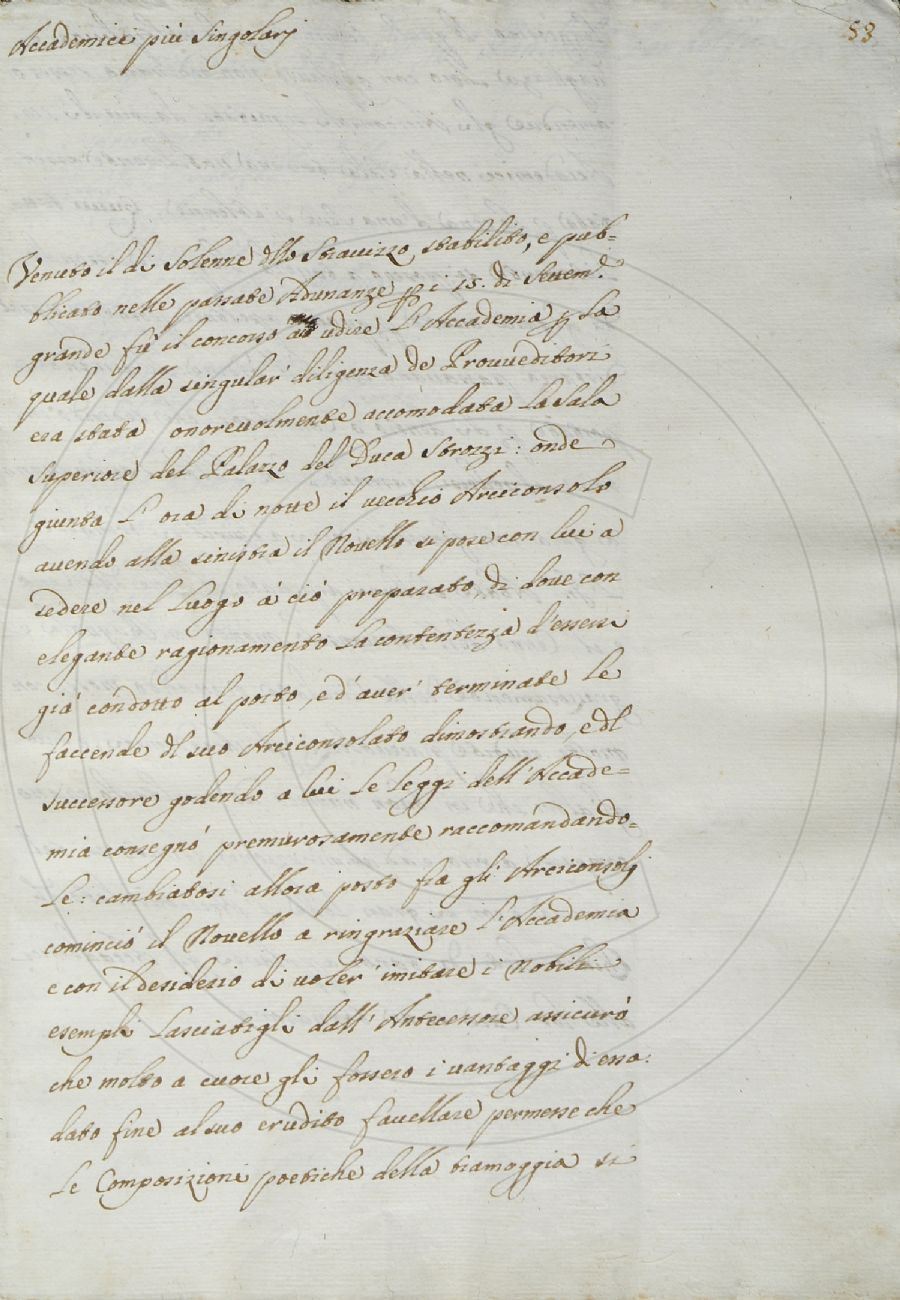 Accademici più Singolarj
53
Venuto il di Solenne dllo Stravizzo stabilito, e pub=
blicato nelle passate Adunanze p i 15. di Settem.e
grande fù il concorso ad udire L'Accademia p La
quale dalla singular' diligenza de Provveditori
era stata onorevolmente accomodata La Sala
Superiore del Palazzo del Duca Strozzi: onde
giunta L'ora di notte il vecchio Arciconsolo
avendo alla sinistra il Novello si pose con lui a
sedere nel Luogo á ció preparato di dove con
elegante ragionamento La contentezza d'essersi
giá condotto al porto, e d'aver' terminate Le
faccende dl suo Arciconsolato dimostrando, e dl
successore godendo a lui Le Leggi dell'Accade=
mia consegnó premurosamente raccomandando=
Le: cambiatosi allora posto fra gli Arciconsolj
cominció il Novello a ringraziare L'Accademia
e con il desiderio di voler' imitare i Nobili
esempli Lasciatigli dall'Antecessore assicuró
che molto a cuore gli fossero i vantaggi di essa:
dato fine al suo erudito favellare permesse che
Le Composizioni poetiche della tramoggia si